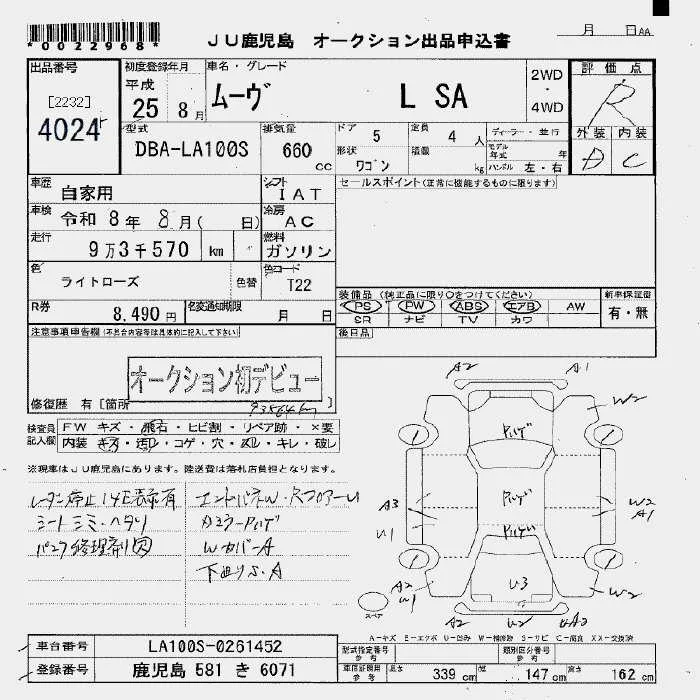 *0022968*
JU鹿児島 オークション出品申込書
月 日AA
出品番号
[2232]
4024
初度登録年月
平成
25 8 月
車名・グレード
ムーヴ L SA
2WD
・
4WD
評価点
R
外装 内装
D C
型式
DBA-LA100S
排気量
660 cc
ドア 5
定員 4 人
形状 ワゴン
積載 kg
ディーラー・並行
モデル年式 年
ハンドル 左・右
車歴 自家用
シフト IAT
セールスポイント(正常に機能するものに限ります)
車検 令和 8年 8月( 日)
冷房 AC
走行 9万3千570 km
燃料 ガソリン
色 ライトローズ 色替
色コード T22
装備品 (純正品に限り○をつけてください)
PS PW ABS エアB AW
SR ナビ TV カワ
新車保証書
有・無
R券 8,490 円
名変通知期限 月 日
後日品
注意事項申告欄(不具合内容等は具体的に記入して下さい)
オークション初デビュー
修復歴 有[箇所 ]
93564km
検査員記入欄
FW キズ・飛石・ヒビ割・リペア跡・×要
内装・キズ・汚レ・コゲ・穴・スレ・キレ・破レ
※現車はJU鹿児島にあります。陸送費は落札店負担となります。
シート シミ・ヘタリ
パンク修理剤欠
カミラーアルゲ
WカバーA
下廻りS・A
A2 A1
W2
アルゲ
A3
U1
アルゲ
アルゲ
W2
A1
A2
W1
U3
W2
A2 U2 UA2
スペア
A-キズ E-エクボ U-凹み W-補修跡 S-サビ C-腐食 XX-交換済
車台番号 LA100S-0261452
登録番号 鹿児島 581 き 6071
型式指定番号
参考
類別区分番号
参考
車検証記載
参考
長さ 339 cm 幅 147 cm 高さ 162 cm